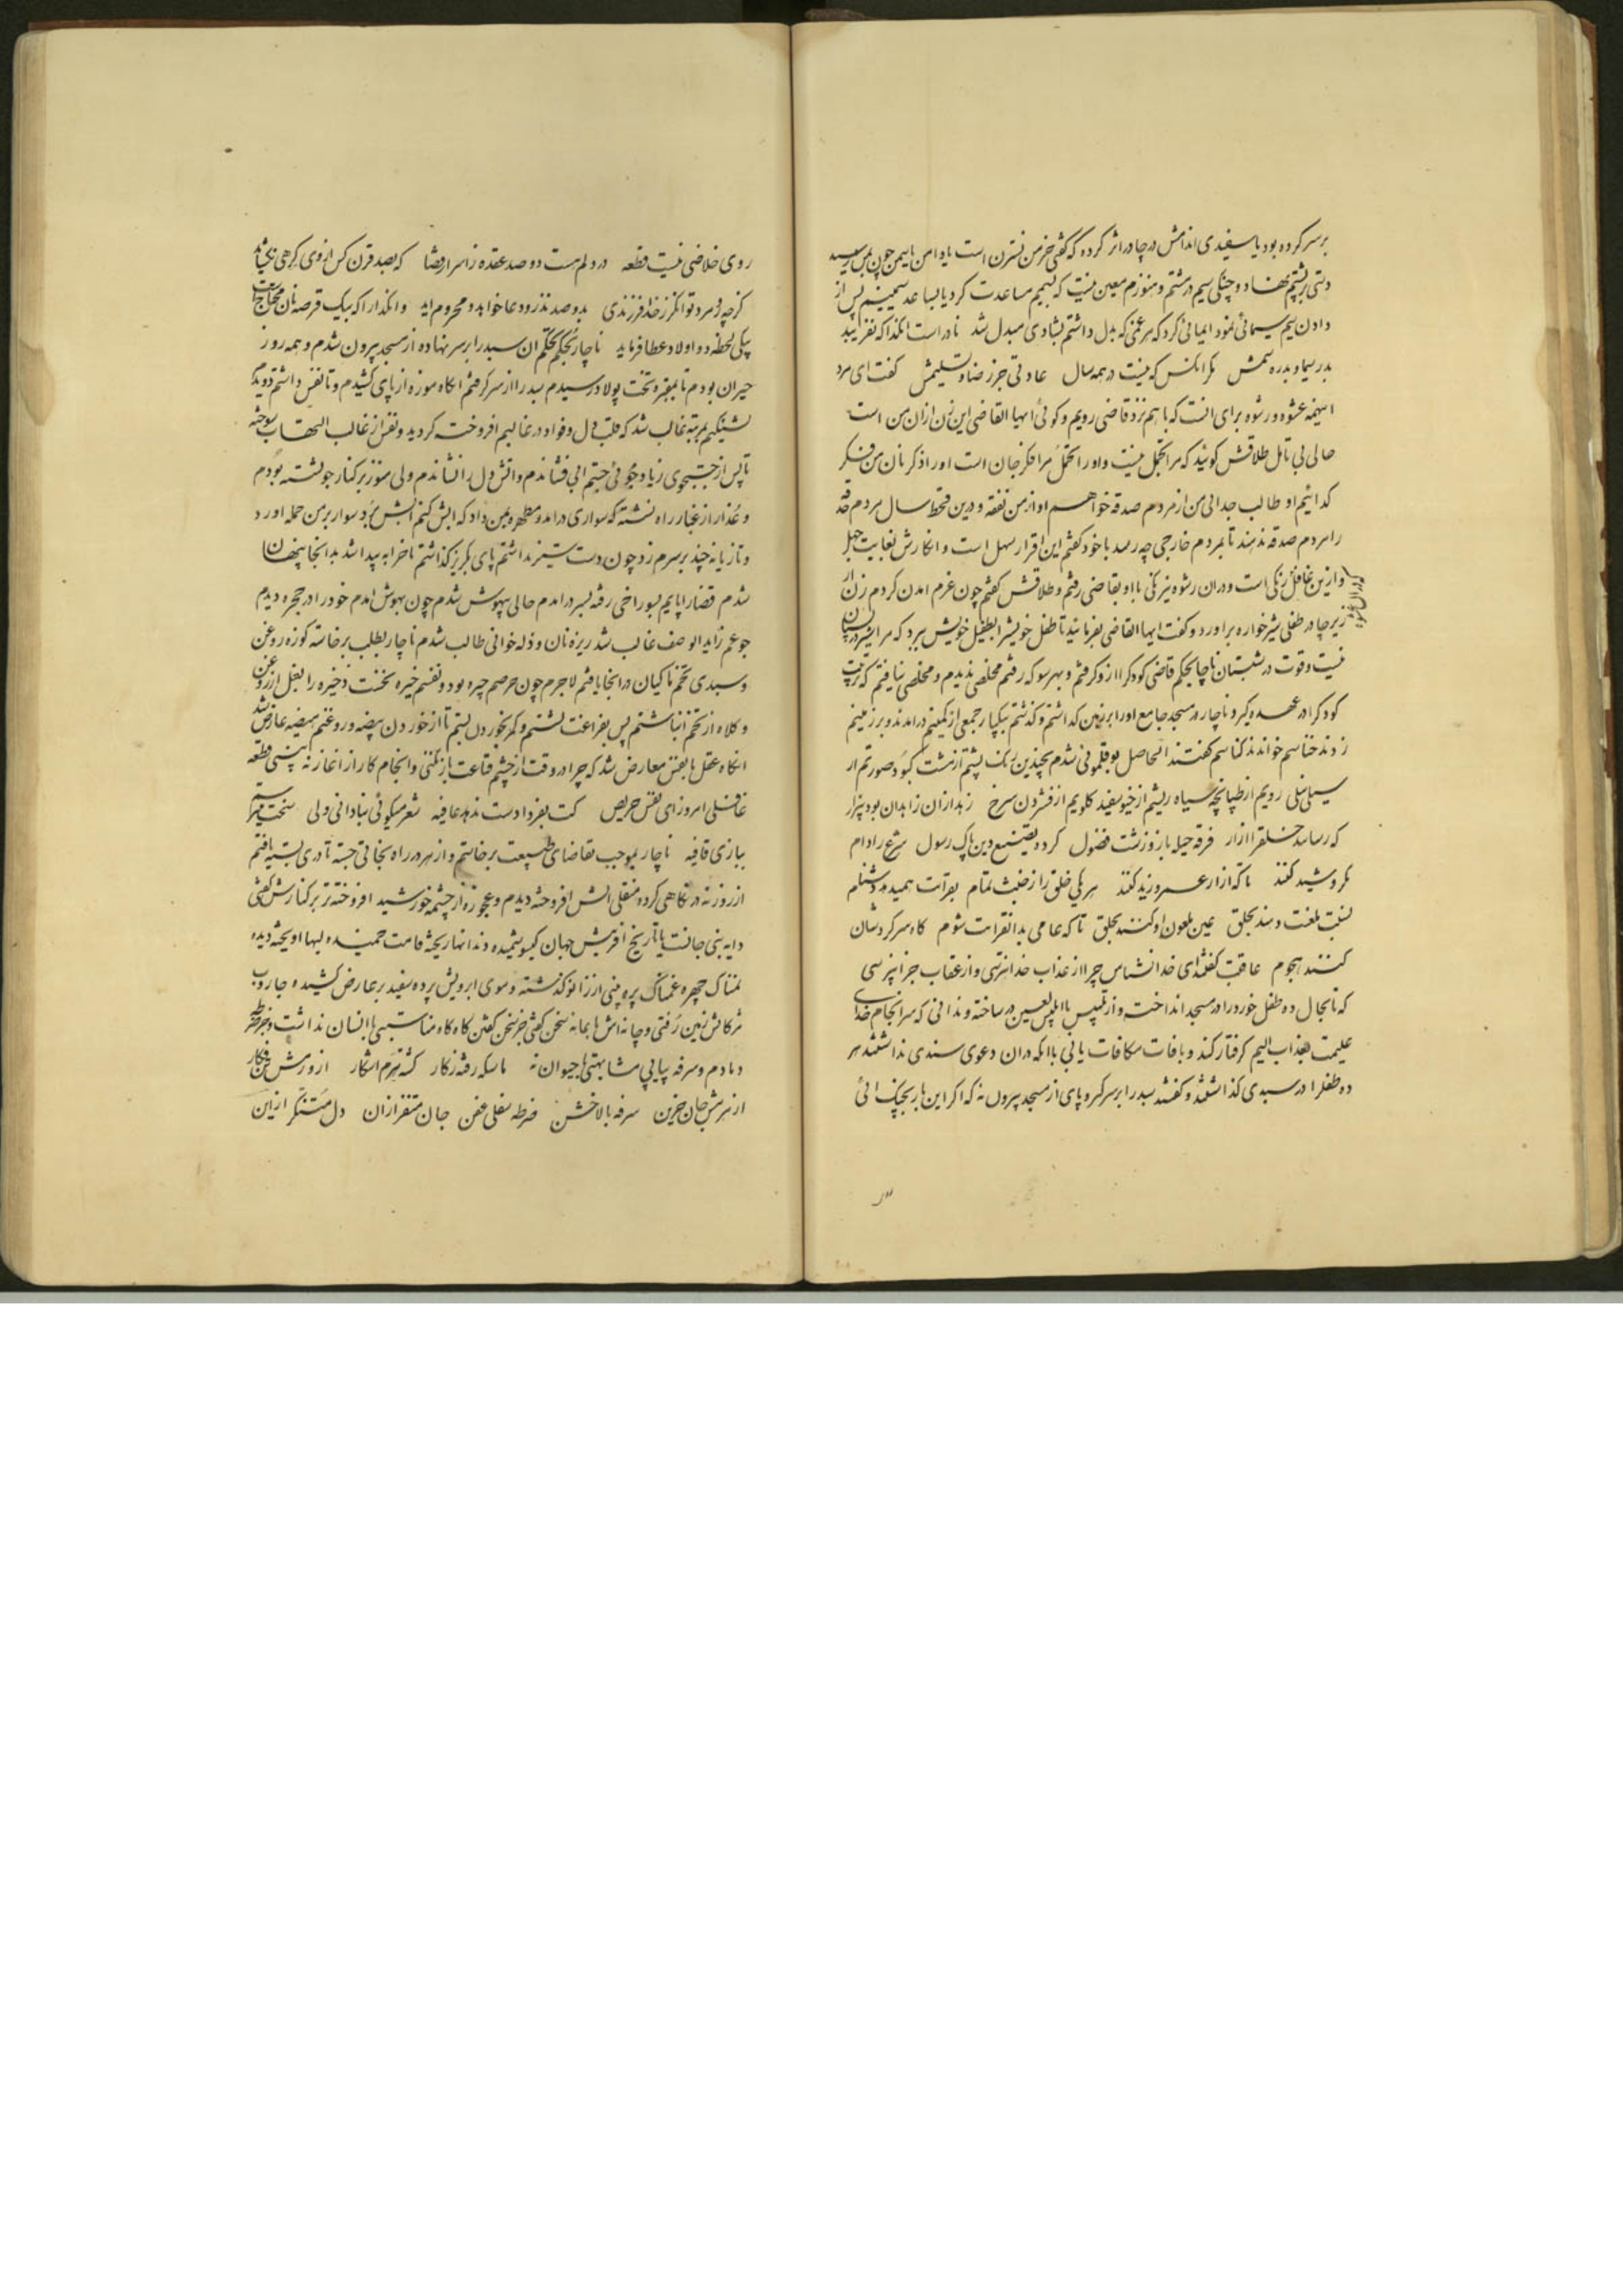 بر سر کرده بود یا سفیدی اندامش در چادر اثر کرده که گفتی خرمن نسترن است یا دامن یاسمن چون بمن رسید
دستی بر پشتم نهاد و چنگی سیم در مشتم و هنوزم معین نیست که بسیمم مساعدت کرد یا بساعد سیمینم پس از
دادن سیم سیمائی نمود و ایمائی کرد که هر غمی که بدل داشتم بشادی مبدل شد نادر است انکدا که نفریبد
بدر سیما و بدره سیمش مکر انکس که نیست در همه سال عادتی جز رضا و تسلیمش گفت ای مرد
اینهمه عشوه و رشوه برای انست که با هم نزد قاضی رویم و گوئی ایها القاضی این زن از ان من است
حالی بی تامل طلاقش گوئید که مرا تجمل نیست و او را تحمل مرا فکر جان است او را ذکر نان من فکر
کدائیم او طالب جدائی من از مردم صدقه خواهم او از من نفقه و درین قحط سال مردم
را مردم صدقه ندهند تا بمردم خارجی چه رسد با خود گفتم این اقرار سهل است و انکارش بغایت جهل
و ازین غافل که در ان عشوه رنگی است و در ان رشوه نیرنگی با او بقاضی رفتم و طلاقش گفتم چون عزم امدن کردم زن از
زیر چادر طفلی شیرخواره براورد و گفت ایها القاضی بفرمائید تا طفل خویش را بطفیل خویش ببرد که مرا شیر در پستان
نیست و قوت در شبستان ناچار بحکم قاضی کودک را از او گرفتم و بهر سو که رفتم مخلصی ندیدم و مخلصی نیافتم که تربیت
کودک را در عهده گیرد ناچار در مسجد جامع او را بر زمین گذاشتم و گذشتم بیکبار جمعی از کمینم درامدند و بر زمینم
زدند خناسم خواندند کناسم گفتند الحاصل بوقلمونی شدم بچندین رنک پشتم از مشت کبود صورتم از
سیلی نیلی رویم از طپانچه سیاه ریشم از خیو سفید گلویم از فشردن سرخ زهد ازان زاهدان بود بیزار
که رسانند خلق را ازار فرقه حیله باز و زشت فضول کرده تضییع دین پاک رسول شرع را دام
مکر و شید کنند تا که ازار عمرو و زید کنند هر یکی خلق را ز خبث تمام بقرات همی دهد دشنام
لعنت دهند بخلق عین ملعون او کنند بحلق تا که عامی بدان قرائت شوم کاه سر کردشان
کنند هجوم عاقبت گفتند ای خدا نشناس چرا از عذاب خدا نترسی و از عقاب جزا نپرسی
که تا بحال ده طفل خود را در مسجد انداخت و از تلبیس با ابلیس لعین در ساخته و ندانی که سرانجام خدای
علیمت بعذاب الیم گرفتار کند و بافات مکافات یابی با انکه در ان دعوی سندی نداشتند هر
ده طفل را در سبدی گذاشتند و گفتند سبد را بر سر گیر و پای از مسجد بیرون نه که اگر این بار بچنگ ائی
روی خلاصی نیست قطعه در دلم هست دو صد عقده ز اسرار قضا که بصد قرن کس از وی گرهی نگشاید
گرچه هر مرد توانگر ز خدا فرزندی بدو صد نذر و دعا خواهد و محروم اید و انکدا را که بیک قرصه نان محتاج است
بیکی لحظه دو اولاد عطا فرماید ناچار بحکم تحکم ان سبد را بر سر نهاده از مسجد بیرون شدم و همه روز
حیران بودم تا بمقبره تخت پولاد رسیدم سبد را از سر گرفتم انگاه موزه از پای کشیدم و تا نفس داشتم دویدم
تشنگیم بمرتبه غالب شد که قلب دل و فواد در غالبم افروخته گردید و نفس از غالب التهاب سوخته
تا پس از جستجوی زیاد جوئی جستم ابی فشاندم و اتش دل را نشاندم ولی هنوز بر کنار جو نشسته بودم
و عذار از غبار راه نشسته که سواری درامد و مطهره بمن داد که ابش کنم ابش برد سوار بر من حمله اورد
و تازیانه چند بر سرم زد چون دست ستیز نداشتم پای بگریز گذاشتم تا خرابه پیدا شد بدانجا پنهان
شدم قضا را پایم بسوراخی رفته بسر درامدم حالی بیهوش شدم چون بهوش امدم خود را در حجره دیدم
جوعم زاید الوصف غالب شد ریزه نان و ذله خوانی طالب شدم ناچار بطلب برخاسته کوزه روغن
و سبدی تخم ماکیان در انجا یافتم لاجرم چون حرصم چیره بود و نفسم خیره نخست ذخیره را بغل از روغن
و کلاه از تخم انباشتم پس بفراغت نشستم و کمر بخوردن بستم تا از خوردن بیضه و روغنم هیضه عارض شد
انگاه عقل با نفس معارض شد که چرا در وقت از چشم قناعت باز نکنی و انجام کار از اغاز نه بینی قطعه
غافلی امروز ای نفس حریص کت بفردا دست ندهد عافیه شعر میگوئی بنادانی ولی سخت میترسم
ببازی قافیه ناچار بموجب تقاضای طبیعت برخاستم و از هر در راه نجاتی جسته تا دری بسته یافتم
از روزنه در نگاهی کرده منقلی اتش افروخته دیدم و عجوزه از چشمه خورشید افروخته تر بر کنارش گفتی
دایه بنی جانست یا تاریخ افرینش جهان گیسو پشمیده دندانها ریخته قامت خمیده لبها اویخته دیده
نمناک چهره غمناک پره بینی از زانو گذشته و موی ابرویش پرده سفید بر عارض کشیده و جاروب
مژگانش زمین رفتی و چانه اش بمانه سخن گفتی جز سخن گفتن گاه گاه مناسبتی با انسان نداشت و بجز ضرطه
دمادم و سرفه پیاپی مشابهتی با حیوان نه
از نهیبش جان حزین سرفه بالا خشن ضرطه سفلی عفن جان متنفر از ان دل متنکر ازین